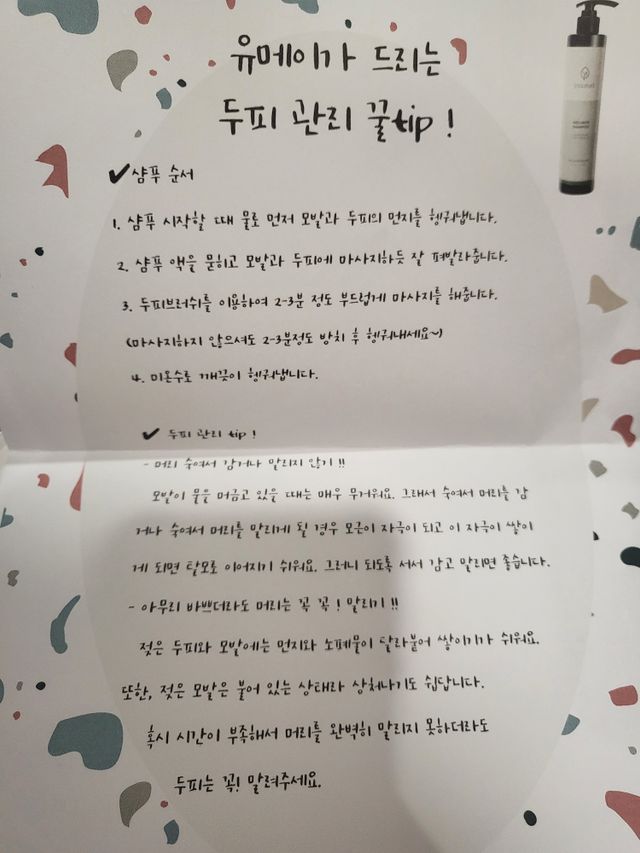 유메이가 드리는
두피 관리 꿀tip !
✔샴푸 순서
1. 샴푸 시작할 때 물로 먼저 모발과 두피의 먼지를 헹궈냅니다.
2. 샴푸 액을 묻히고 모발과 두피에 마사지하듯 잘 펴발라줍니다.
3. 두피브러쉬를 이용하여 2-3분 정도 부드럽게 마사지를 해줍니다.
(마사지하지 않으셔도 2-3분정도 방치 후 헹궈내세요~)
4. 미온수로 깨끗이 헹궈냅니다.
✔ 두피 관리 tip !
- 머리 숙여서 감거나 말리지 않기 !!
모발이 물을 머금고 있을 때는 매우 무거워요. 그래서 숙여서 머리를 감
거나 숙여서 머리를 말리게 될 경우 모근이 자극이 되고 이 자극이 쌓이
게 되면 탈모로 이어지기 쉬워요. 그러니 되도록 서서 감고 말리면 좋습니다.
- 아무리 바쁘더라도 머리는 꼭 꼭 ! 말리기 !!
젖은 두피와 모발에는 먼지와 노폐물이 달라붙어 쌓이기가 쉬워요.
또한, 젖은 모발은 불어 있는 상태라 상처나기도 쉽답니다.
혹시 시간이 부족해서 머리를 완벽히 말리지 못하더라도
두피는 꼭! 말려주세요.